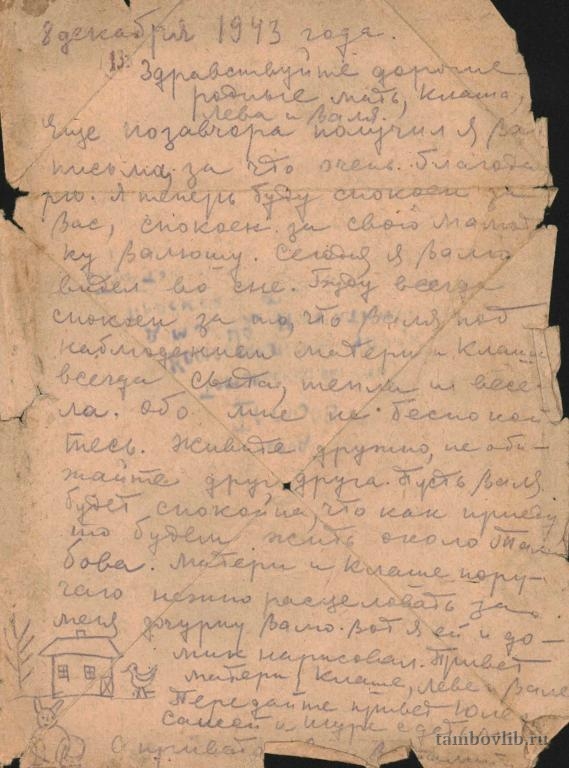 8 декабря 1943 года.
13.
Здравствуйте дорогие
родные мать, Клаша,
Лева и Валя.
Еще позавчора получил я Ва
письма, за что очень благода
рю. Я теперь буду спокоен за
Вас, спокоен за свою малют
ку Валюшу. Сегодня я Валю
видел во сне. Буду всегда
спокоен за то, что Валя под
наблюдением матери и Клаши
всегда сыта, тепла и весе-
ла. Обо мне не беспокой
тесь. Живите дружно, не оби-
жайте друг друга. Пусть Валя
будет спокойна, что как приеду
то будем жить около Там
бова. Матери и Клаше пору-
чаю нежно расцеловать за
меня дочурку Валю. Вот я ей и до-
мик нарисовал. Привет
матери, Клаше, Леве и Вале
Передайте привет Юле
Сашей и Шуре с дет
С приветом
tambovlib.ru